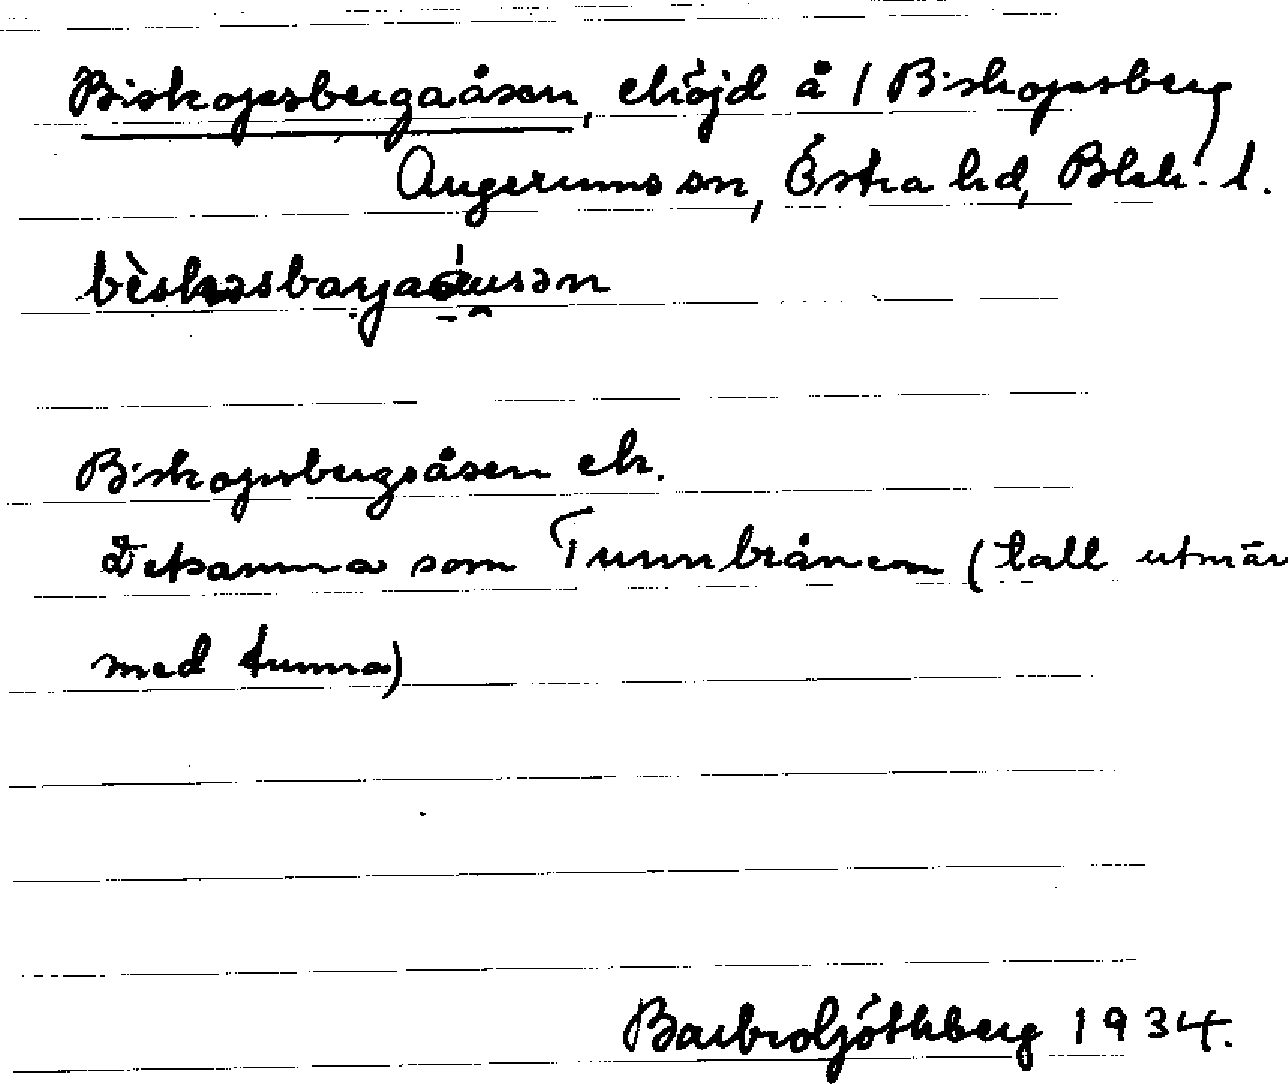 Biskopsbergaåsen, höjd å 1 Biskopsberg
Augerums sn, Östra hd, Blek. l.
Biskopsbergsåsen ek.
Detsamma som Tunnbrånen (tall utmär
med tunna)
Barbro Göthberg 1934.